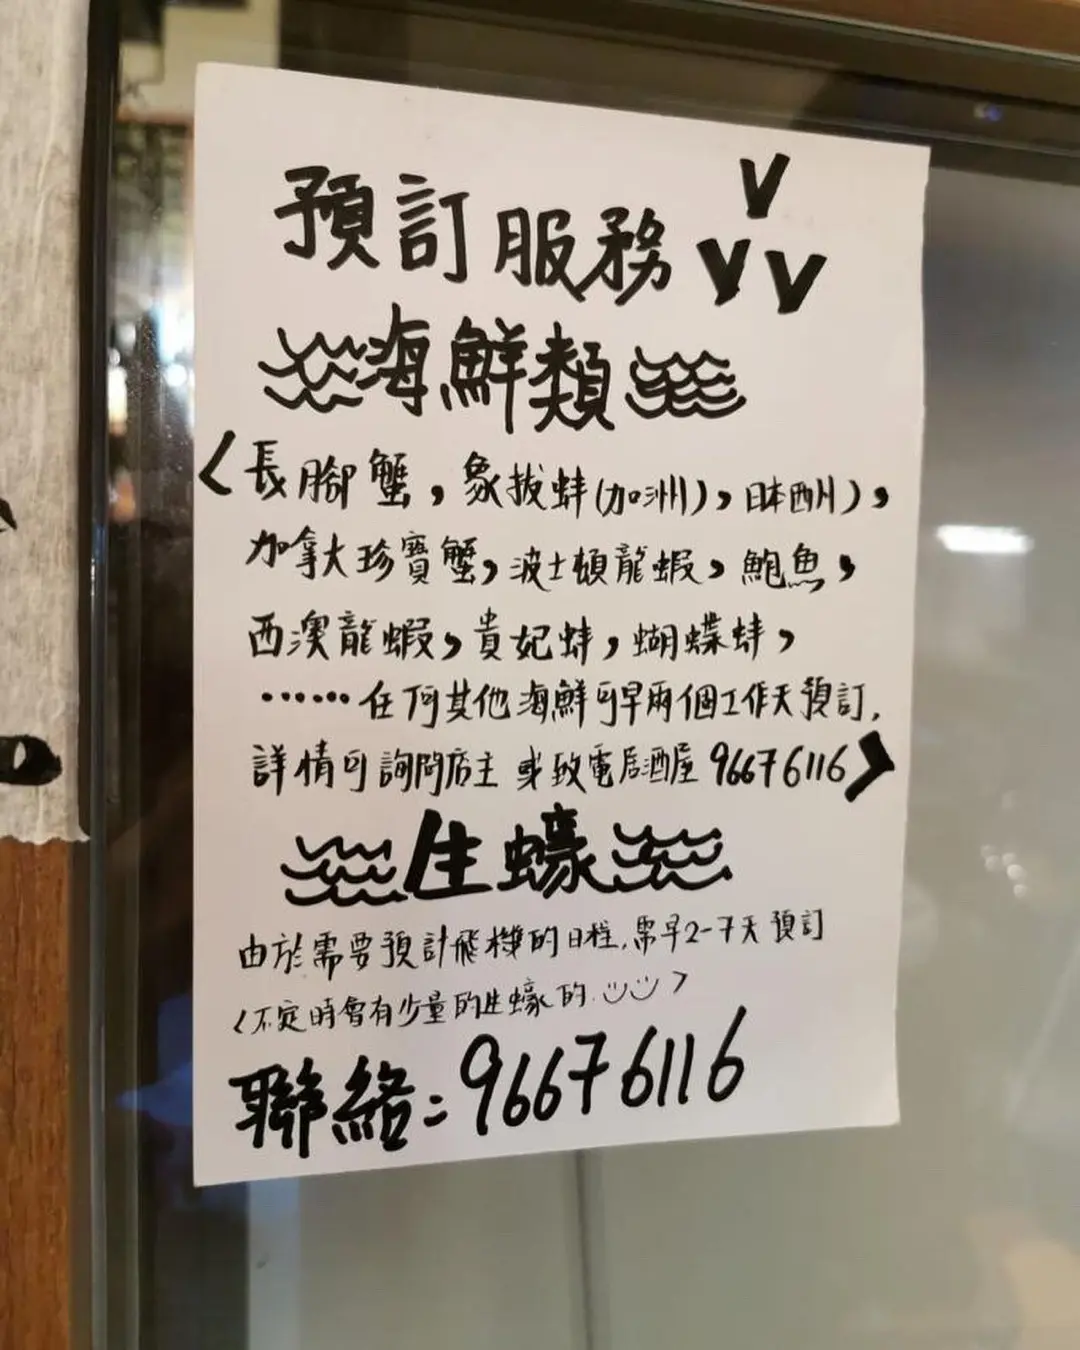 預訂服務
海鮮類
<長腳蟹，象拔蚌(加洲)，日本西州)，
加拿大珍寶蟹，波士頓龍蝦，鮑魚，
西澳龍蝦，貴妃蚌，蝴蝶蚌，
……任何其他海鮮可早兩個工作天預訂.
詳情可詢問店主 或致電居酒屋 96676116>
生蠔
由於需要預計飛機的日程,需早2-7天預訂
<不定時會有少量的生蠔的.>
聯絡:96676116